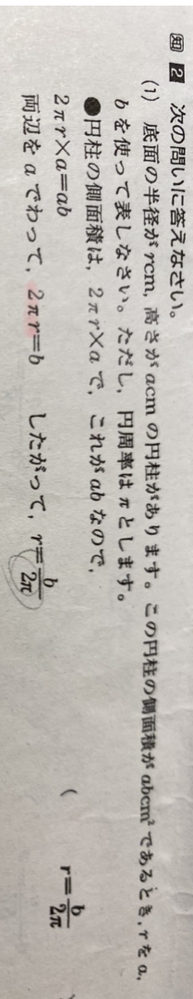 知 2 次の問いに答えなさい。
(1) 底面の半径がrcm, 高さがacmの円柱があります。この円柱の側面積がabcm²であるとき, rをa,
bを使って表しなさい。ただし, 円周率はπとします。
●円柱の側面積は, 2πr×aで, これがabなので,
2πr×a=ab
両辺をaでわって, 2πr=b したがって, r=b/2π
( r=b/2π )